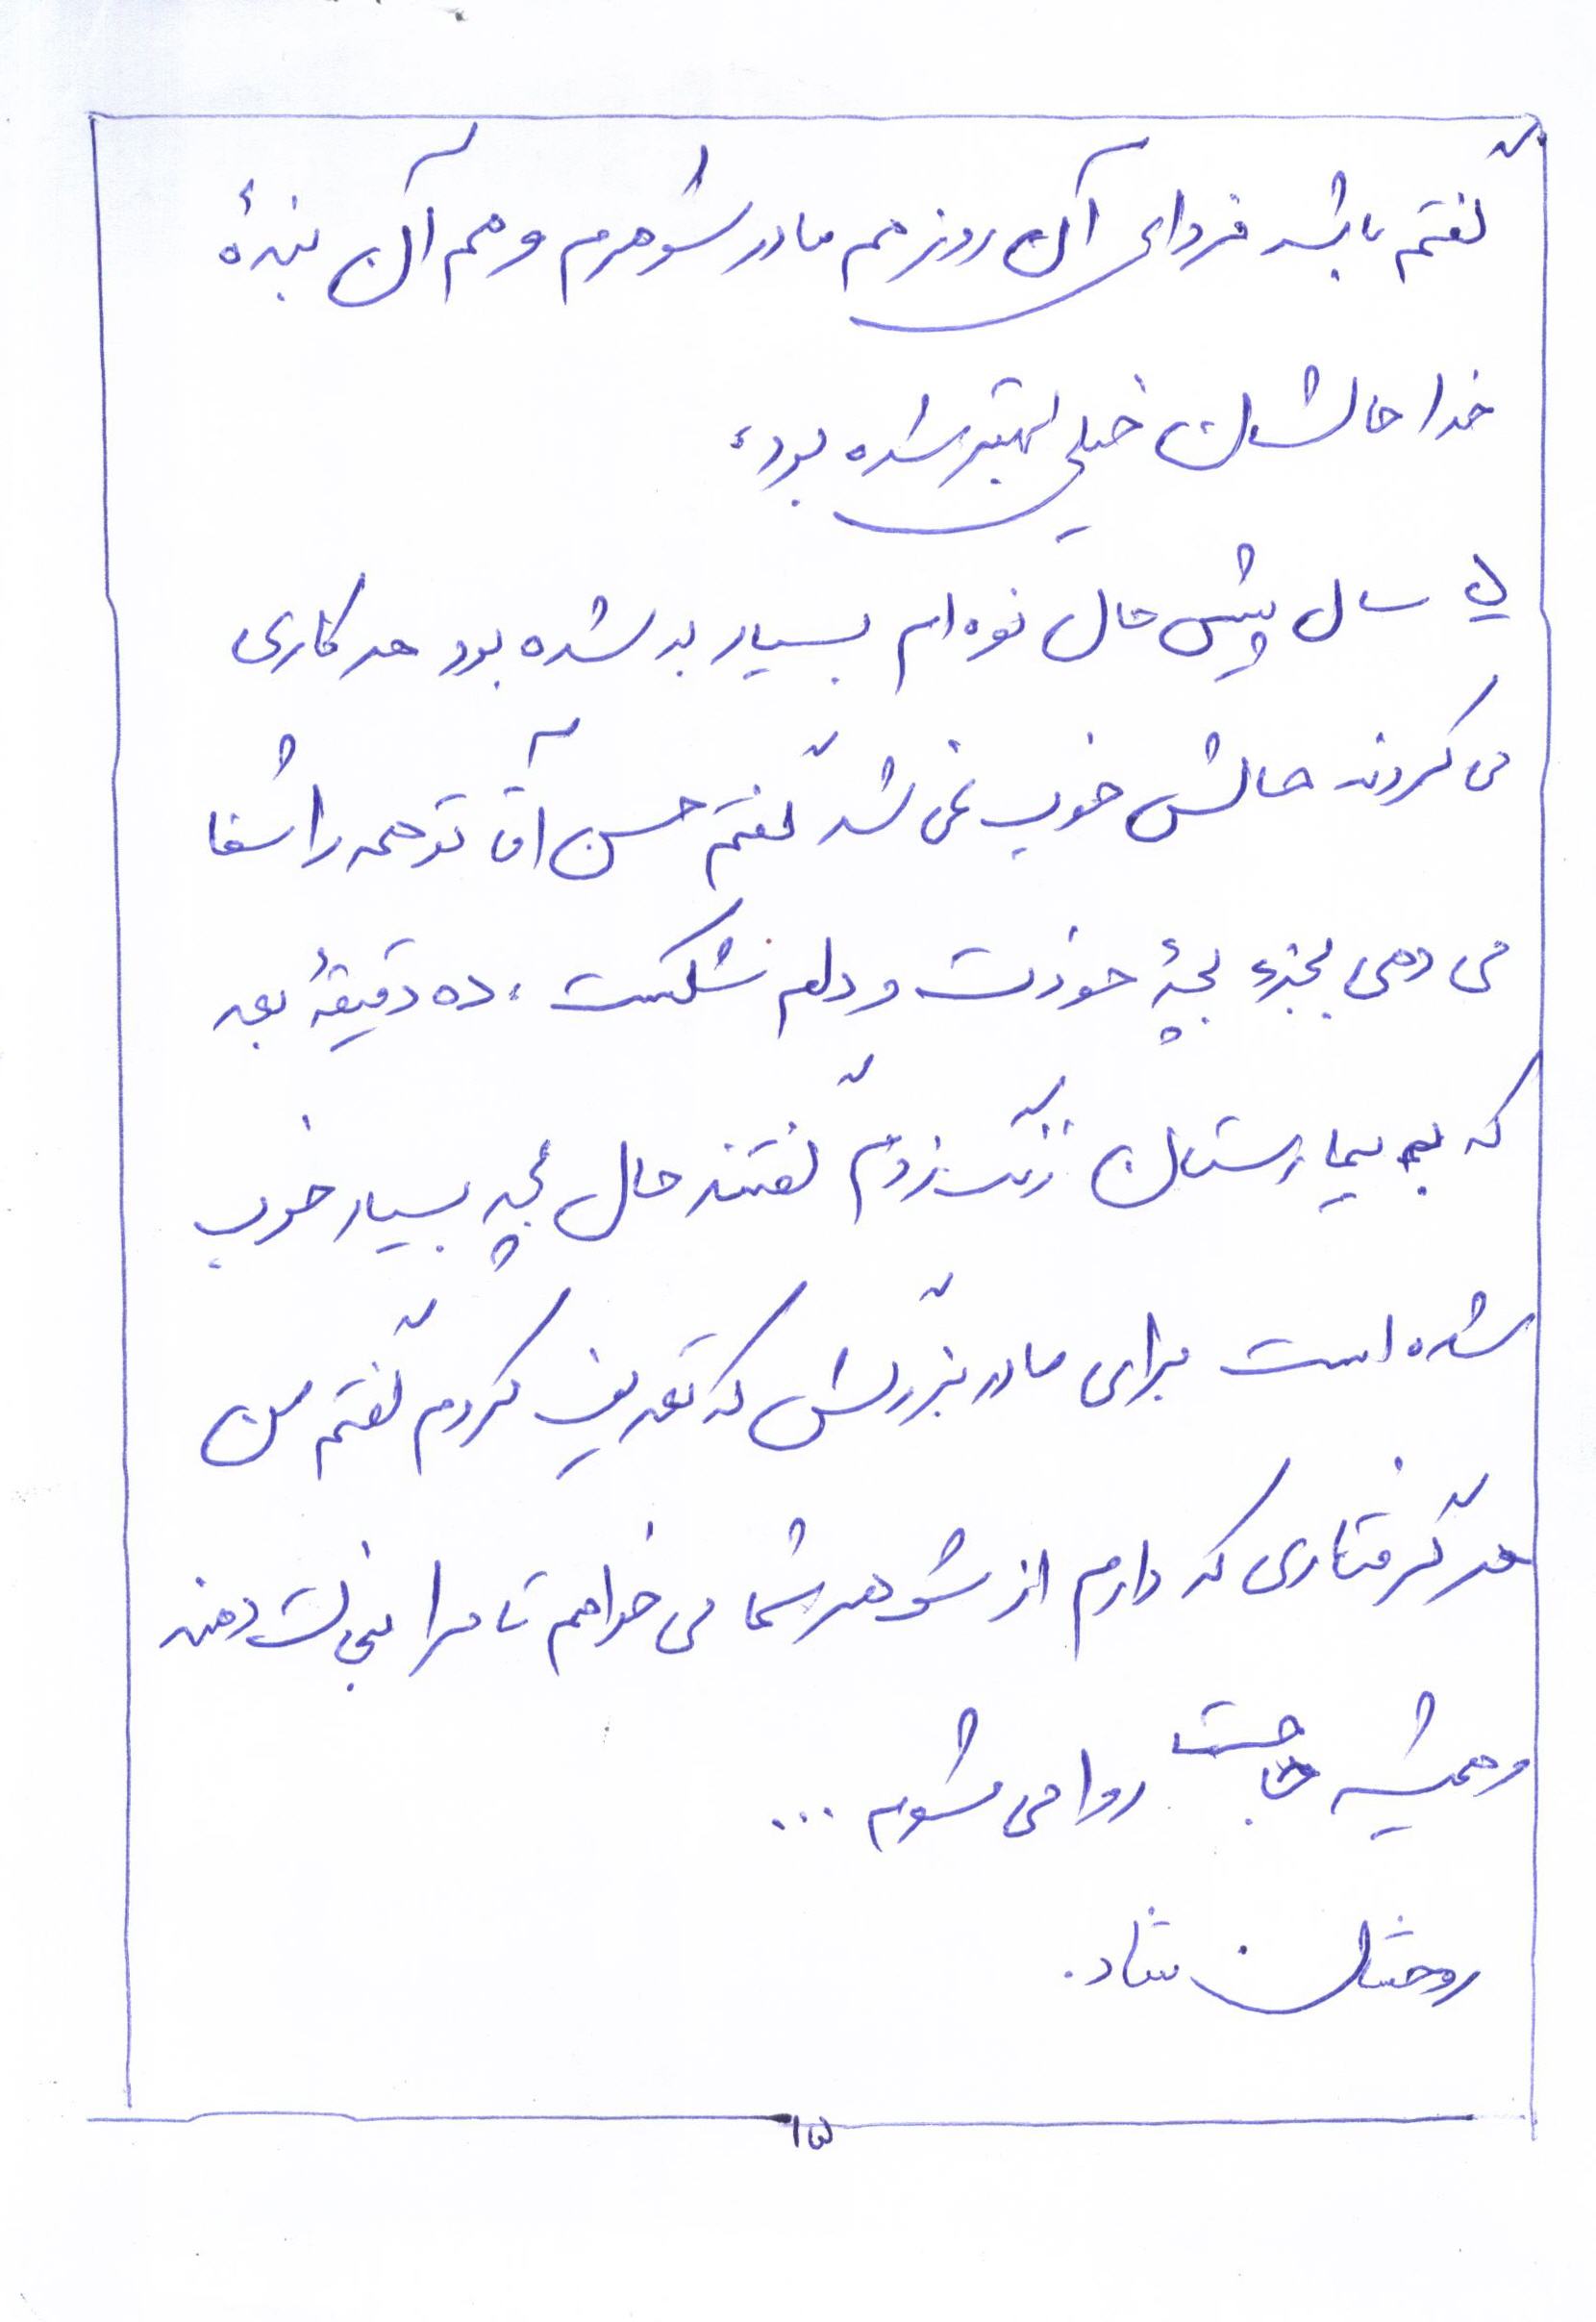 گفتم باشد فردای آن روز هم مادر شوهرم و هم آن بندهٔ
خدا حالشان خیلی بهتر شده بود،
۵ سال پیش حال نوه ام بسیار بد شده بود هر کاری
می کردند حالش خوب نمی شد گفتم حسن آقا تو همه را شفا
می دهی بجزء بچهٔ خودت و دلم شکست، ده دقیقهٔ بعد
که به بیمارستان زنگ زدم گفتند حال بچه بسیار خوب
شده است برای مادر بزرگش که تعریف کردم گفتم من
هر گرفتاری که دارم از شوهر شما می خواهم تا مرا نجات دهند
و همیشه حاجت روا می شوم ...
روحشان شاد.
۱۵